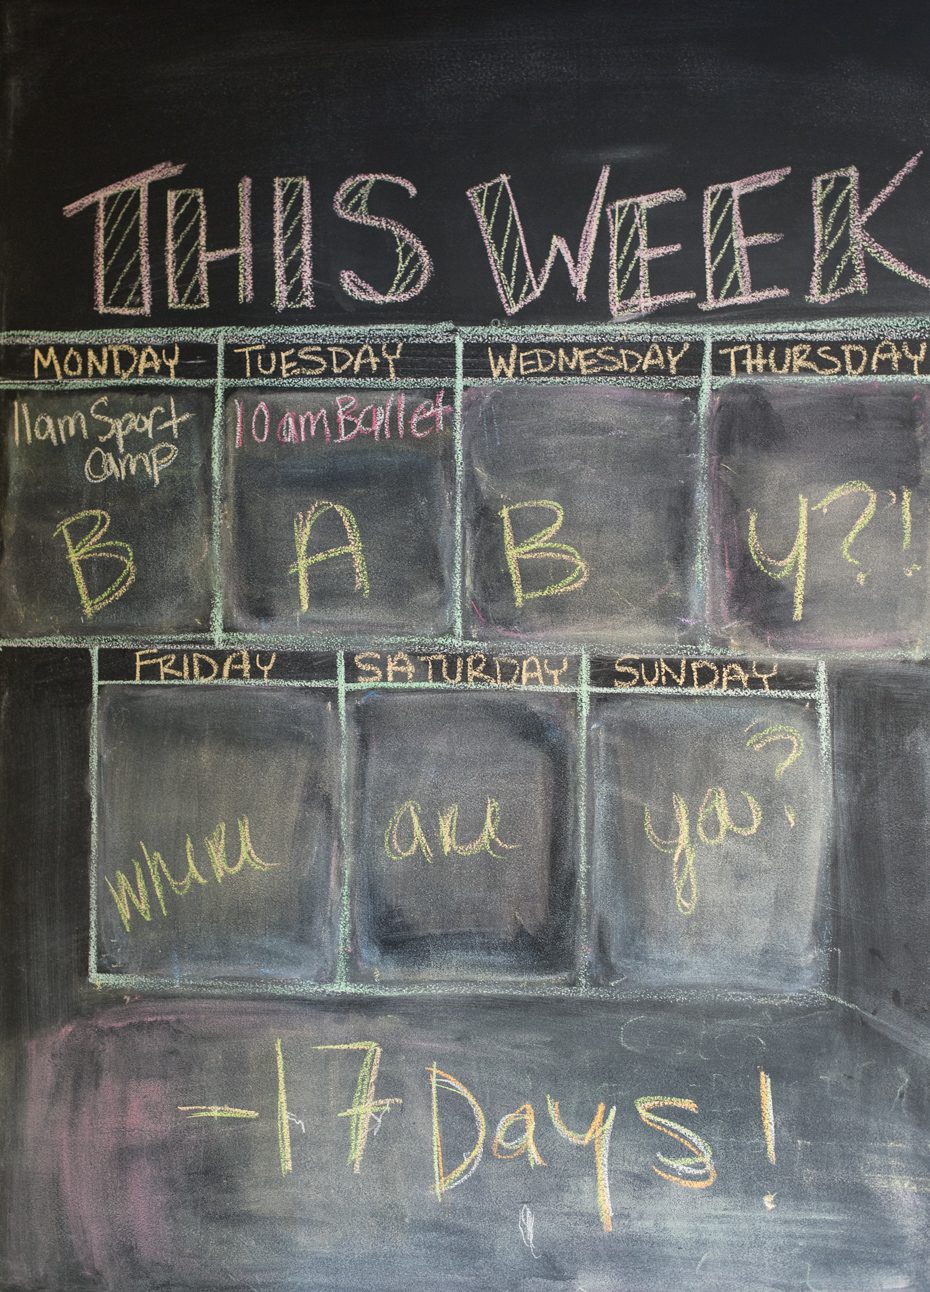 THIS WEEK
MONDAY TUESDAY WEDNESDAY THURSDAY
11am Sport 10am Ballet
camp
B A B Y?!
FRIDAY SATURDAY SUNDAY
where are you?
-17 Days!